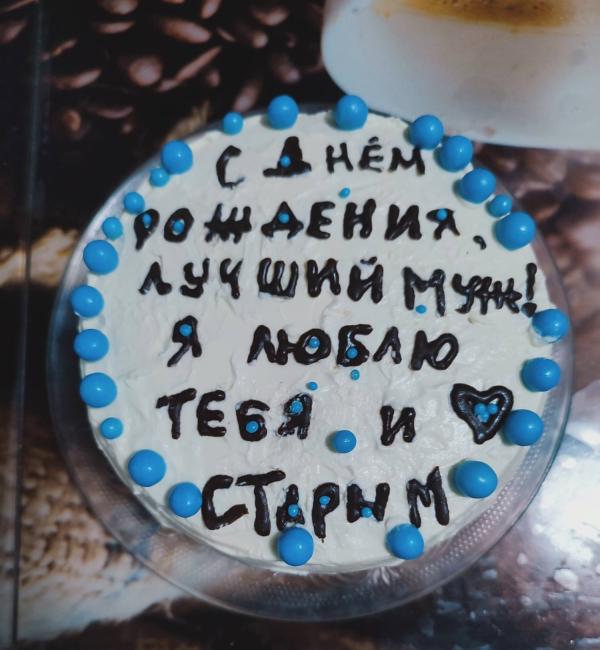 С ДНЁМ
РОЖДЕНИЯ,
ЛУЧШИЙ МУЖ!
Я ЛЮБЛЮ
ТЕБЯ И
СТАРЫМ